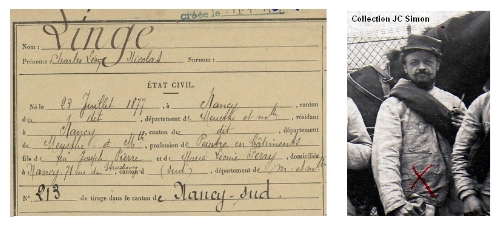 créée le
Nom : Linge
Prénoms : Charles Léon Nicolas Surnom :
ÉTAT CIVIL.
Né le 23 Juillet 1877, à Nancy, canton
du dit, département de Meurthe et Mlle, résidant
à Nancy, canton du dit, département
de Meurthe et Mlle, profession de Peintre en bâtiments
fils de feu Joseph Pierre et de Marie Ferry, domiciliés
à Nancy, 71 rue du canton d (sud), département de M-et-Mlle
N° 213 de tirage dans le canton de Nancy-sud.
Collection JC Simon